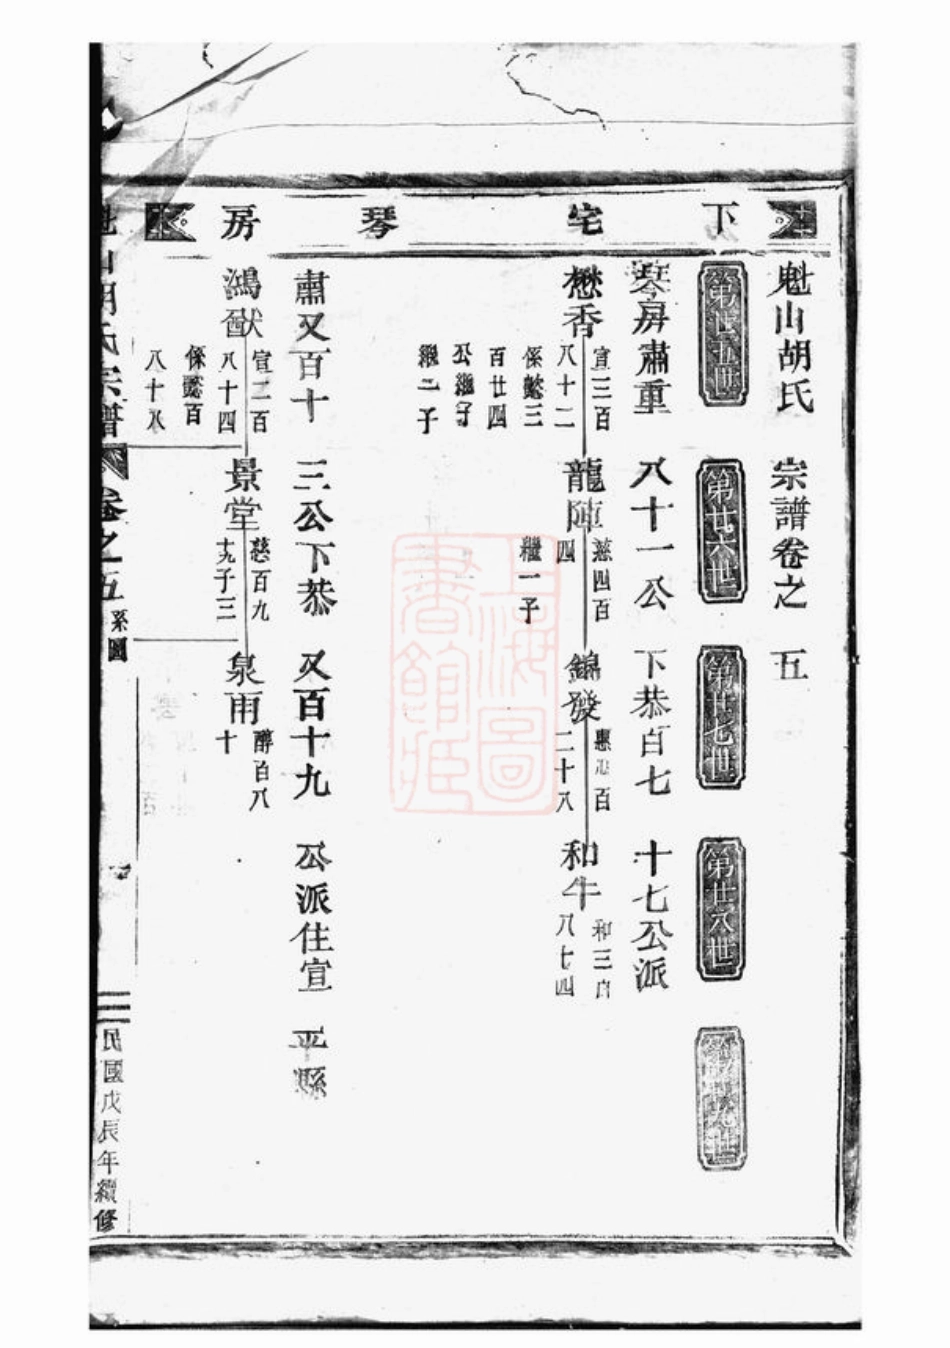 下宅琴房
魁山胡氏宗譜卷之五
第廿五世
第廿六世
第廿七世
第廿八世
第廿九世
琴房肅重八十一公下恭百七十七公派
懋香
宣三百
八十二
係懿三
百廿四
公繼子
繼二子
龍陣
慈四百
四
繼一子
錦發
惠 百
二十八
和牛
和三百
八七四
肅又百十三公下恭又百十九公派住宣平縣
鴻猷
宣二百
八十四
係懿百
八十八
景堂
慈百九
十九子三
泉雨
醇百八
十
魁山胡氏宗譜
卷之五
系圖
民國戊辰年續修
上海圖書館藏